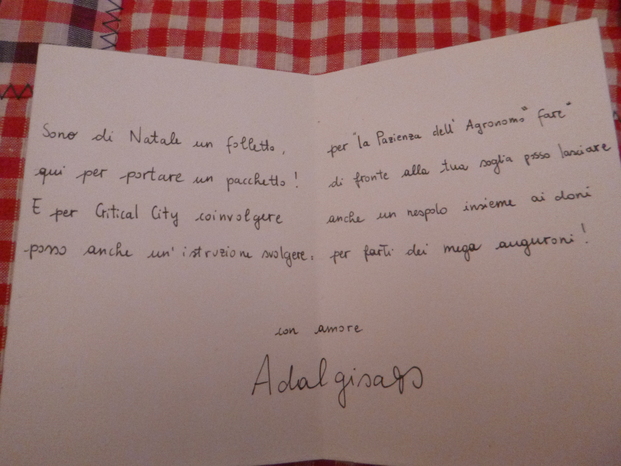 Sono di Natale un folletto,
qui per portare un pacchetto!
E per Critical City coinvolgere
posso anche un'istruzione svolgere:
per "la Pazienza dell'Agronomo" fare"
di fronte alla tua soglia posso lasciare
anche un nespolo insieme ai doni
per farti dei mega auguroni!
con amore
Adalgisa